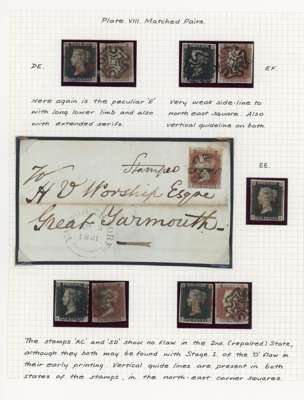 Plate VIII. Matched Pairs.
DE.
EF.
Here again is the peculiar 'E'
with long lower limb and also
with extended serifs.
Very weak side-line to
north east square. Also
vertical guideline on both.
Stamped
EE.
H V Worship Esqre
Great Yarmouth.
The stamps 'AC' and 'SD' show no flaw in the 2nd. (repaired) State,
although they both may be found with Stage 1. of the 'O' flaw in
their early printing. Vertical guide lines are present in both
states of the stamps, in the north-east corner squares.